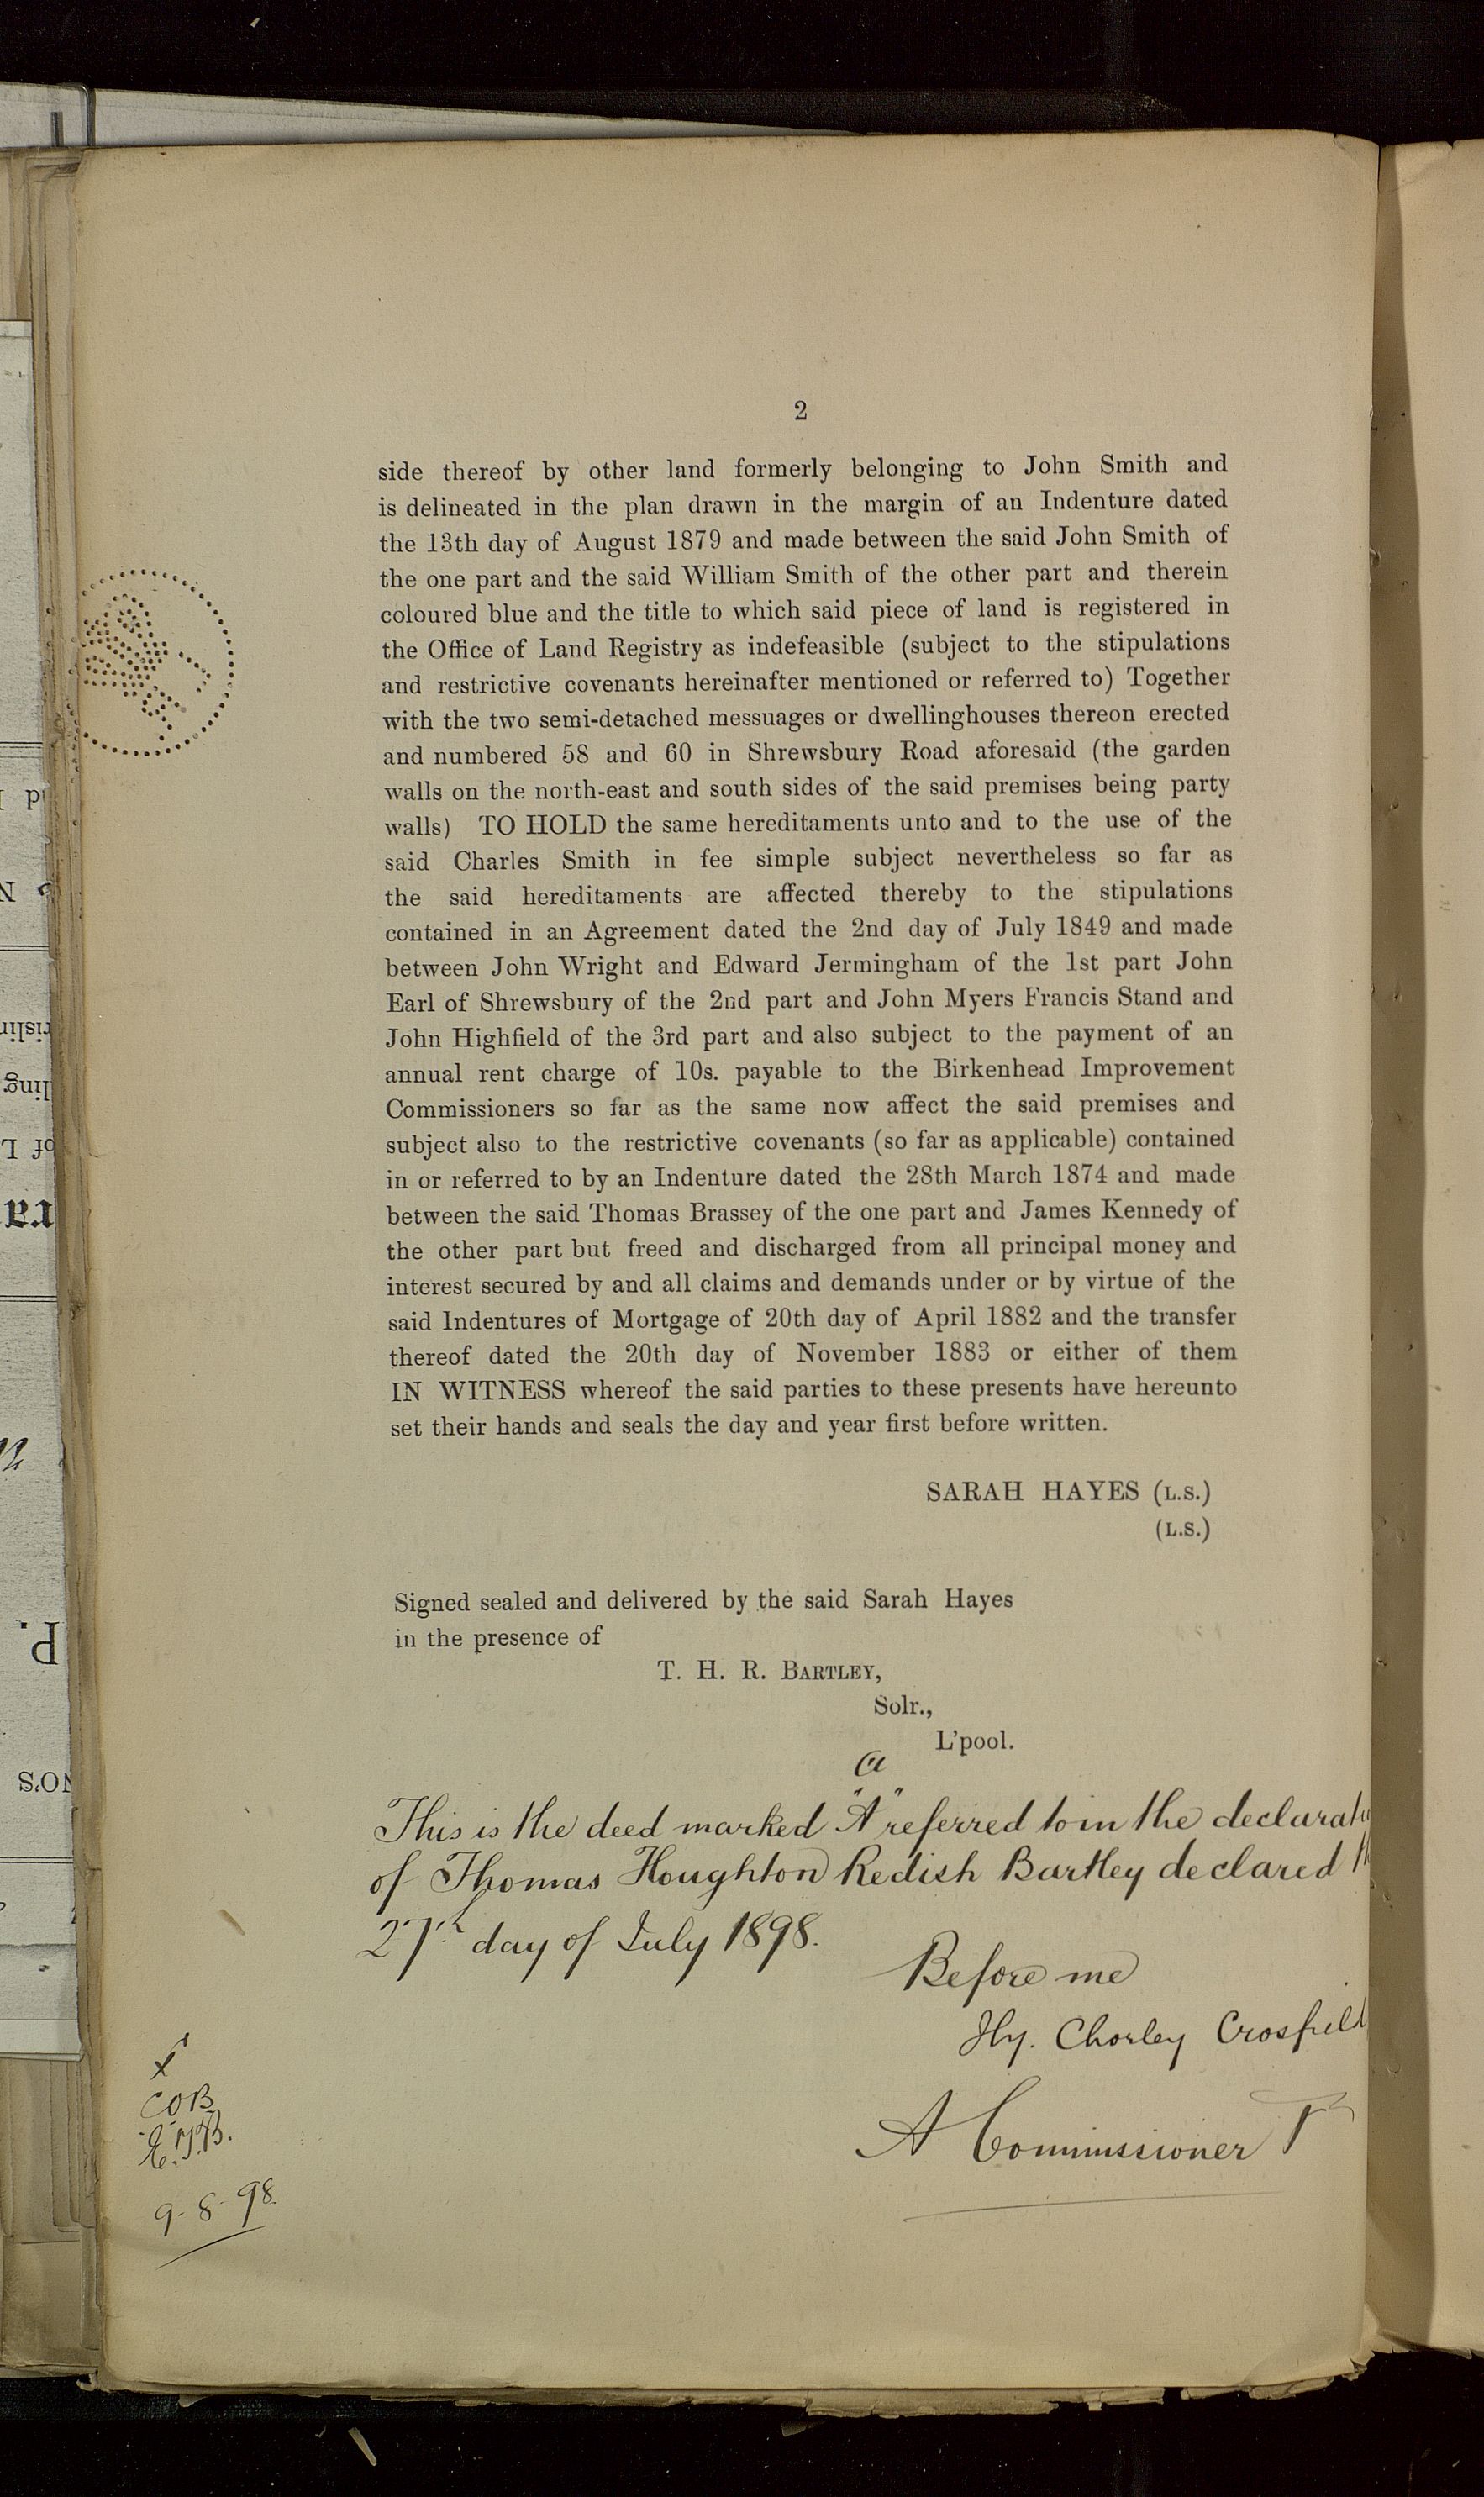 2
side thereof by other land formerly belonging to John Smith and
is delineated in the plan drawn in the margin of an Indenture dated
the 13th day of August 1879 and made between the said John Smith of
the one part and the said William Smith of the other part and therein
coloured blue and the title to which said piece of land is registered in
the Office of Land Registry as indefeasible (subject to the stipulations
and restrictive covenants hereinafter mentioned or referred to) Together
with the two semi-detached messuages or dwellinghouses thereon erected
and numbered 58 and 60 in Shrewsbury Road aforesaid (the garden
walls on the north-east and south sides of the said premises being party
walls) TO HOLD the same hereditaments unto and to the use of the
said Charles Smith in fee simple subject nevertheless so far as
the said hereditaments are affected thereby to the stipulations
contained in an Agreement dated the 2nd day of July 1849 and made
between John Wright and Edward Jermingham of the 1st part John
Earl of Shrewsbury of the 2nd part and John Myers Francis Stand and
John Highfield of the 3rd part and also subject to the payment of an
annual rent charge of 10s. payable to the Birkenhead Improvement
Commissioners so far as the same now affect the said premises and
subject also to the restrictive covenants (so far as applicable) contained
in or referred to by an Indenture dated the 28th March 1874 and made
between the said Thomas Brassey of the one part and James Kennedy of
the other part but freed and discharged from all principal money and
interest secured by and all claims and demands under or by virtue of the
said Indentures of Mortgage of 20th day of April 1882 and the transfer
thereof dated the 20th day of November 1883 or either of them
IN WITNESS whereof the said parties to these presents have hereunto
set their hands and seals the day and year first before written.
SARAH HAYES (L.S.)
(L.S.)
Signed sealed and delivered by the said Sarah Hayes
in the presence of
T. H. R. BARTLEY,
Solr.,
L'pool.
a
This is the deed marked "A" referred to in the declarat
of Thomas Houghton Redish Bartley declared th
27th day of July 1898.
Before me
Hy. Chorley Crosfield
A Commissioner
COB
E.J.B.
9-8-98